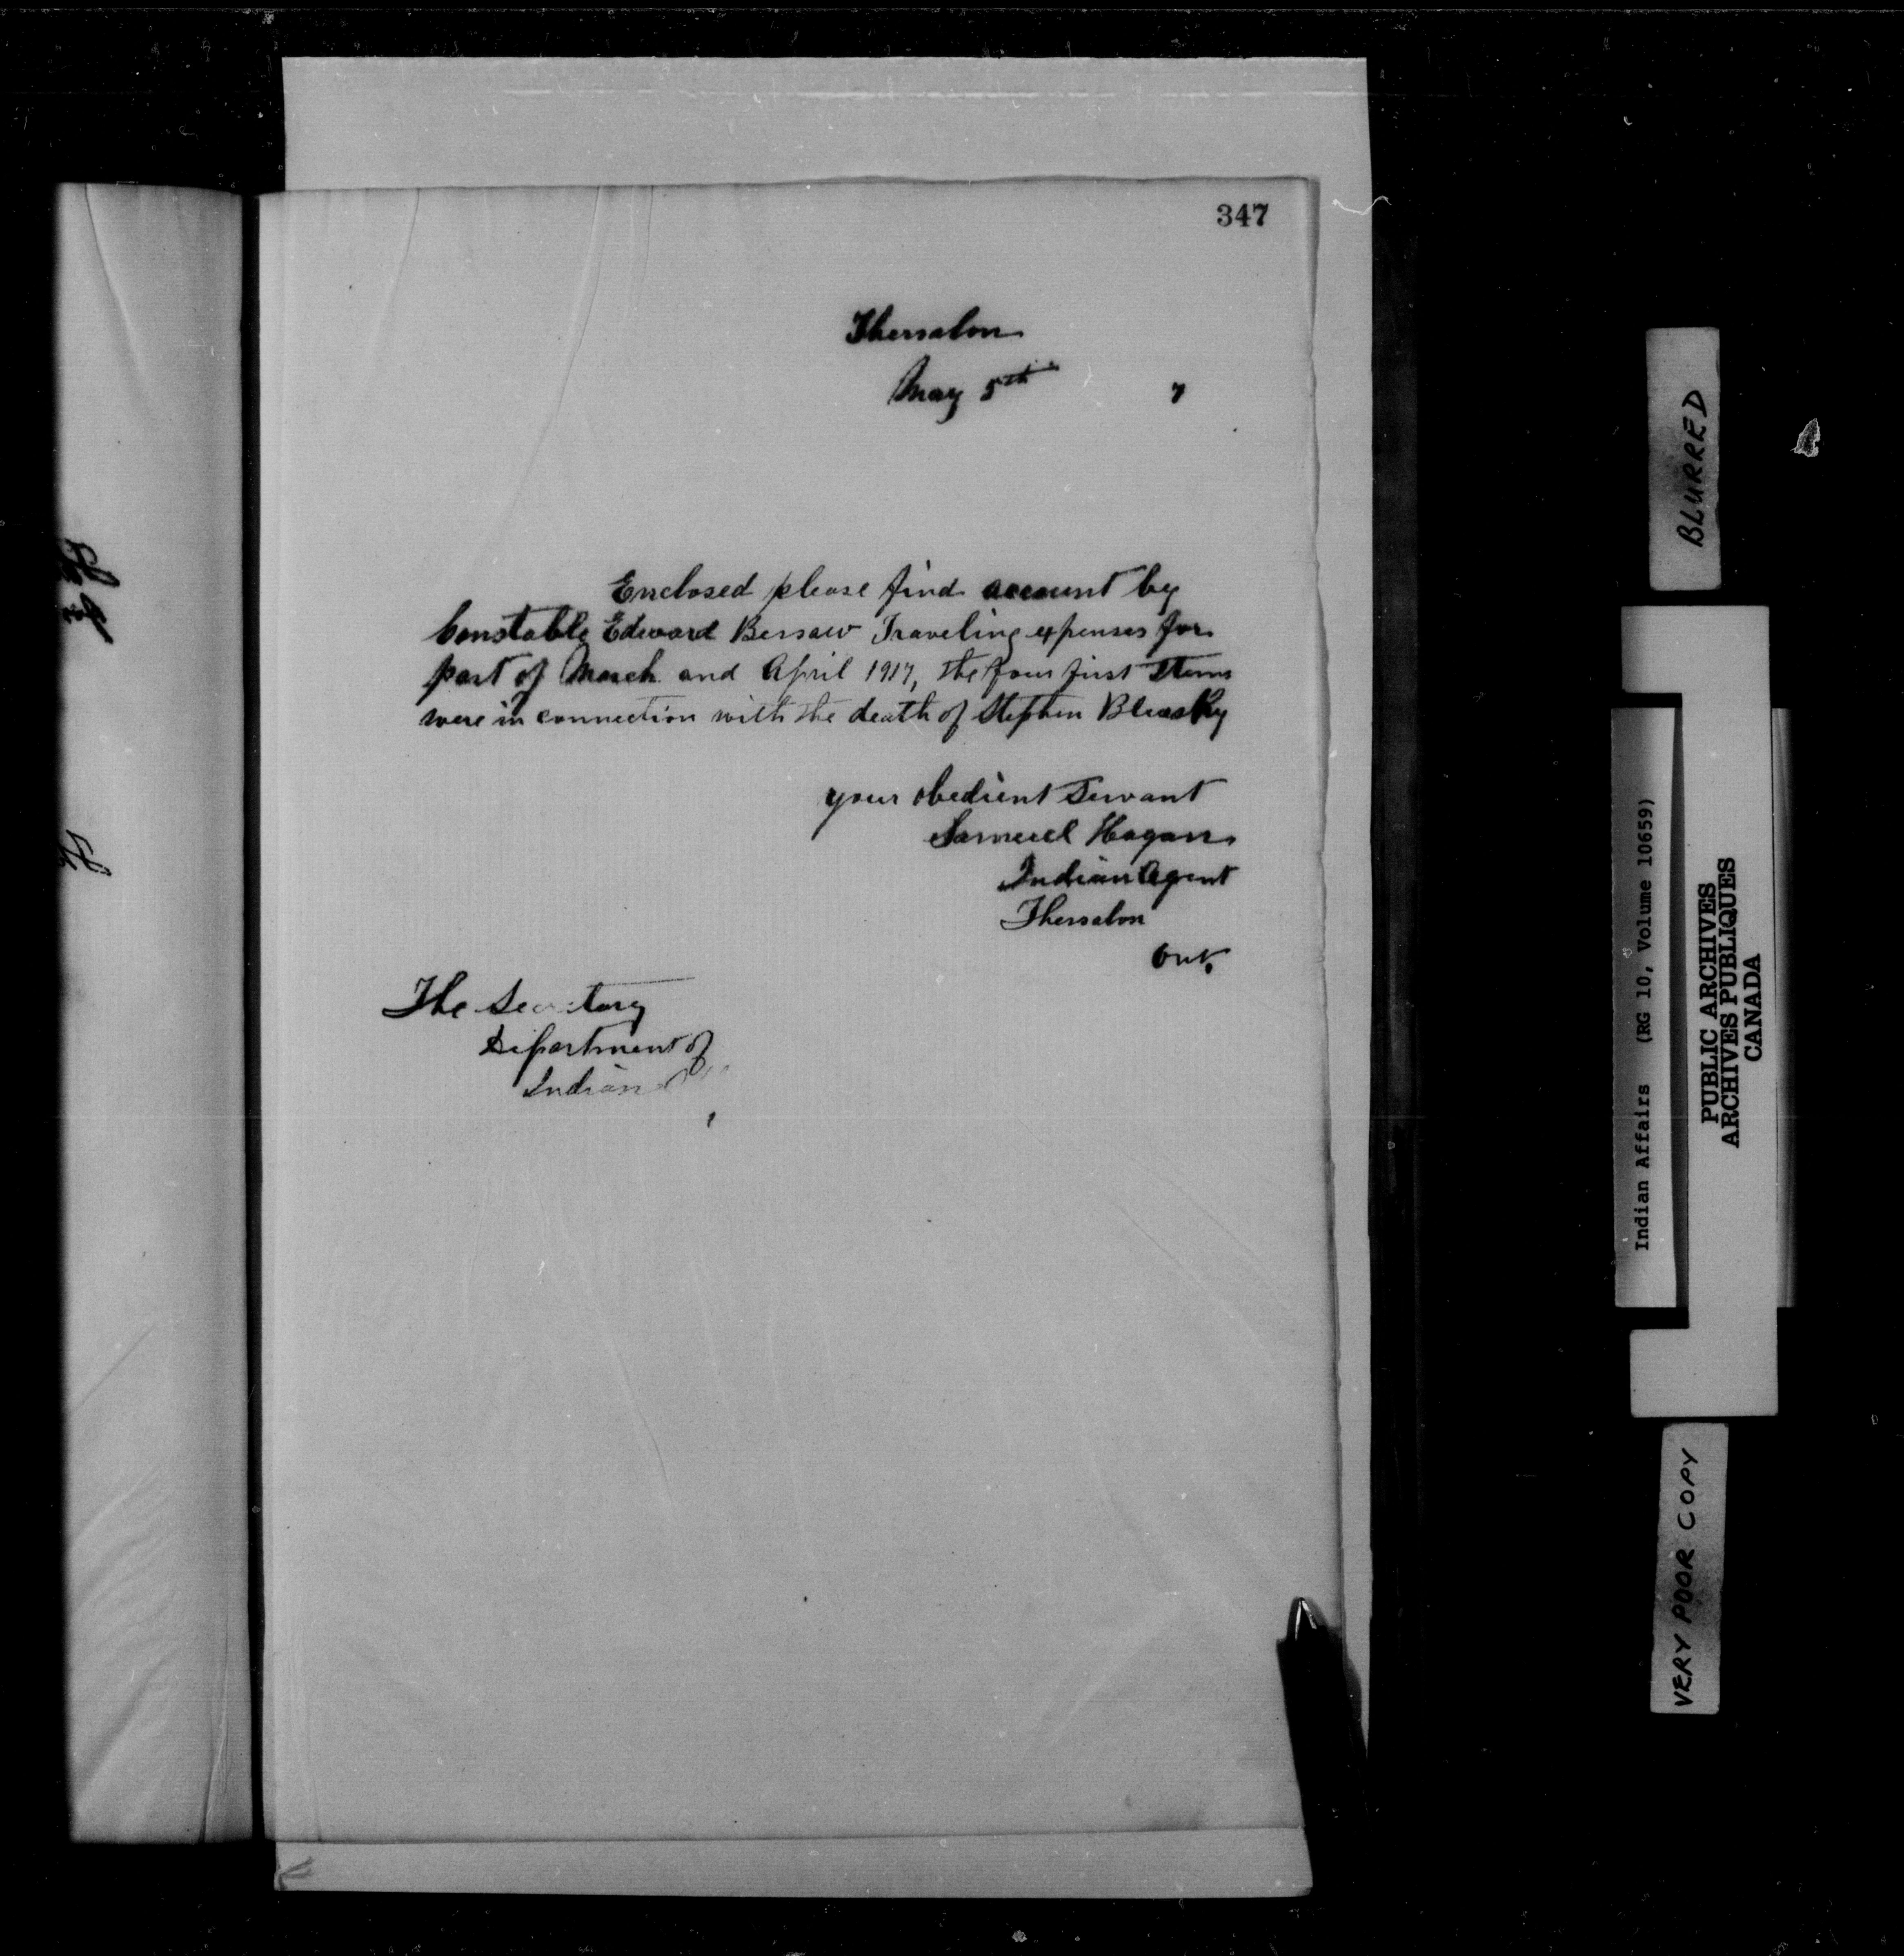 347
Thessalon
May 5th 7
Enclosed please find account by
Constable Edward Bessaw Traveling expenses for
part of March and April 1917, the four first Items
were in connection with the death of Stephen
your obedient Servant
Samuel Hagan
Indian Agent
Thessalon
Ont.
The Secretary
Department of
Indian
BLURRED
Indian Affairs (RG 10, Volume 10659)
PUBLIC ARCHIVES
ARCHIVES PUBLIQUES
CANADA
VERY POOR COPY